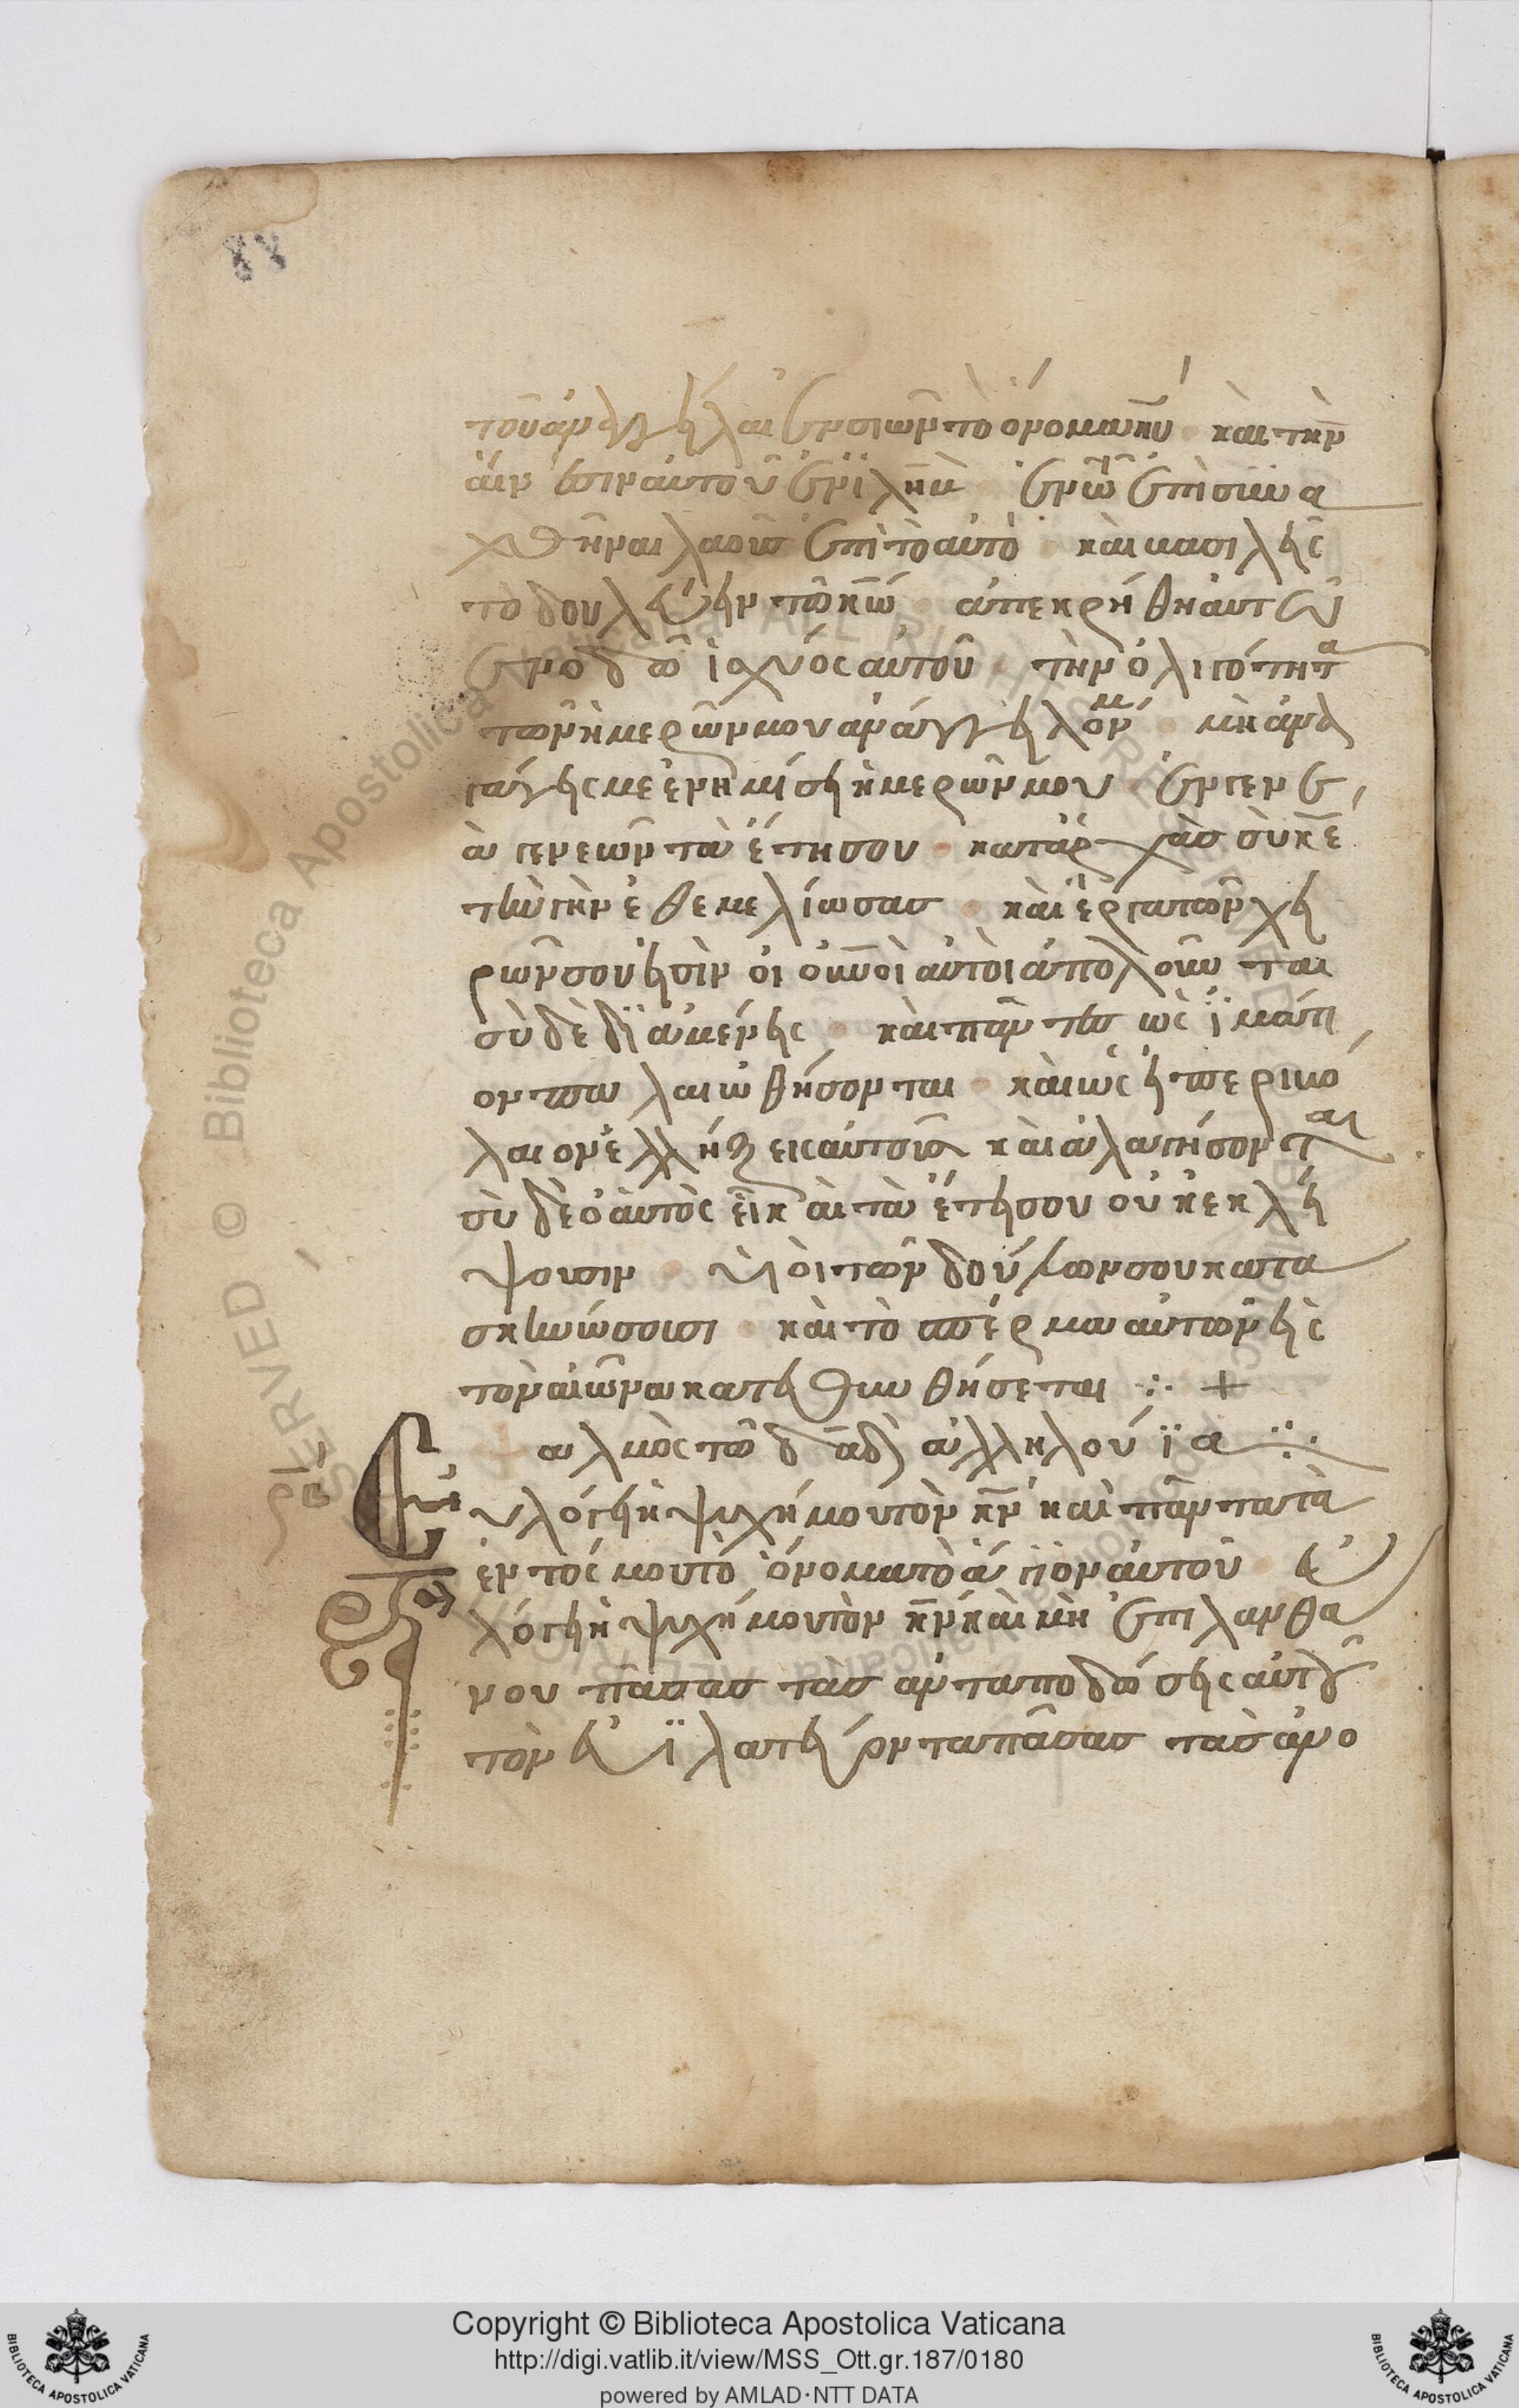 τοῦ ἀναγγεῖλαι ἐν σιὼν τὸ ὄνομα κυ καὶ τὴν
αἴνεσιν αὐτοῦ ἐν ϊλημ ἐν τῶ ἐπισυνα
χθῆναι λαοὺσ ἐπὶ τὸ αὐτὸ καὶ βασιλεῖς
το δουλεύειν τῶ κω ἀπεκρήθη αὐτῶ
ἐν οδῶ ἰσχύος αὐτοῦ τὴν ὀλιγότητα
τῶν ἡμερῶν μου ἀνάγγειλόν μ μὴ ἀνα
γάγης με ἐν ημίση ἡμερῶν μου ἐν γενε
ὰ γενεῶν τὰ ἔτη σου κατάρχὰσ σὺ κε
τὴν γὴν ἐθεμελίωσασ καὶ ἔργα τῶν χει
ρῶν σου εἰσὶν οἱ οὐνοὶ αὐτοὶ ἀπολοῦνται
σὺ δὲ δϊαμένεις καὶ πάντεσ ὡς ϊμάτι
ον παλαιωθήσονται καὶ ὡς εἰ περιβό
λαιον ἑλλήξεις αὐτοὺσ καὶ ἀλαγήσονται
σὺ δὲ ὁ αὐτὸς εἶ καὶ τὰ ἔτη σου οὐκ ἐκλεί
ψουσιν υἱοὶ τῶν δούλων σου κατα
σκηνώσουσι καὶ τὸ σπέρμα αὐτῶν εἰς
τὸν αἰῶνα κατευθυνθήσεται ⁘ +
αλμὸς τῶ δαδ ἀλληλούϊα ⁘
ρβ Εὐ
υλόγει ἡ ψυχή μου τὸν κν καὶ πάντα τὰ
ἐντός μου τὸ ὄνομα τὸ ἅγϊον αὐτοῦ εὐ
λόγει ἡ ψυχή μου τὸν κν καὶ μὴ ἐπιλανθά
νου πάσασ τὰσ ἀνταποδόσεις αὐτοῦ
τὸν εὐϊλατεύοντα πάσασ τὰσ ἀνο
Copyright © Biblioteca Apostolica Vaticana
http://digi.vatlib.it/view/MSS_Ott.gr.187/0180
powered by AMLAD·NTT DATA